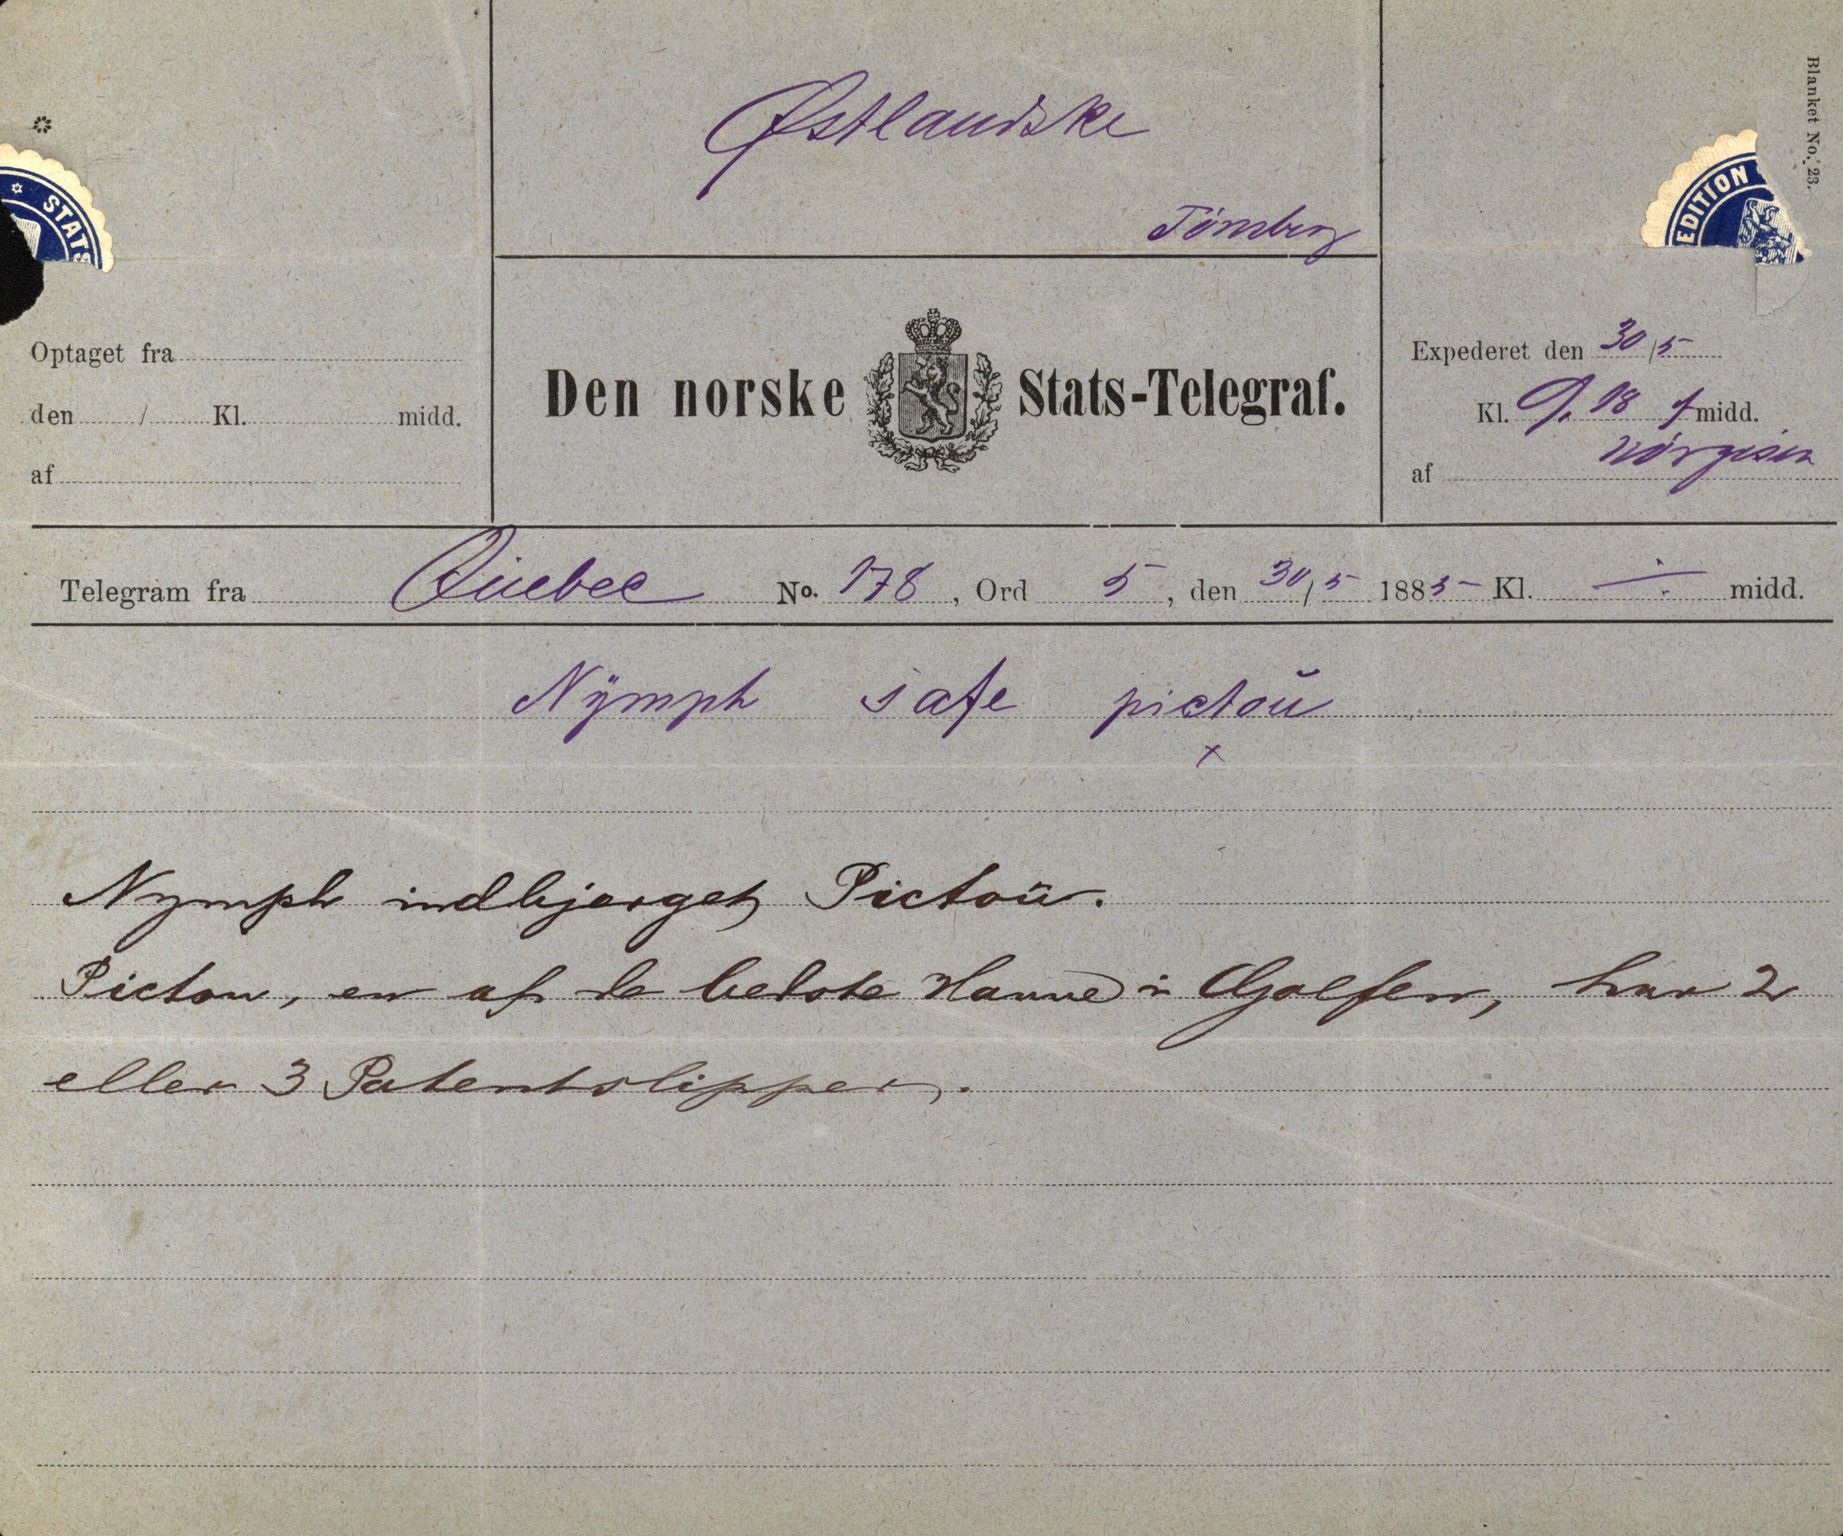 Blanket No. 23.
Østlandske
Tönsberg
STATS
EDITION
Optaget fra
den / Kl. midd.
af
Den norske Stats-Telegraf.
Expederet den 30/5
Kl. 9.18 f midd.
af
Telegram fra Quebec No. 178, Ord 5, den 30/5 1885 Kl. ÷ midd.
Nymph safe pictoŭ
x
Nymph indbjerget Pictoŭ.
Pictou, en af de bedste Havne i Golfen, har 2
eller 3 Patentslipper.